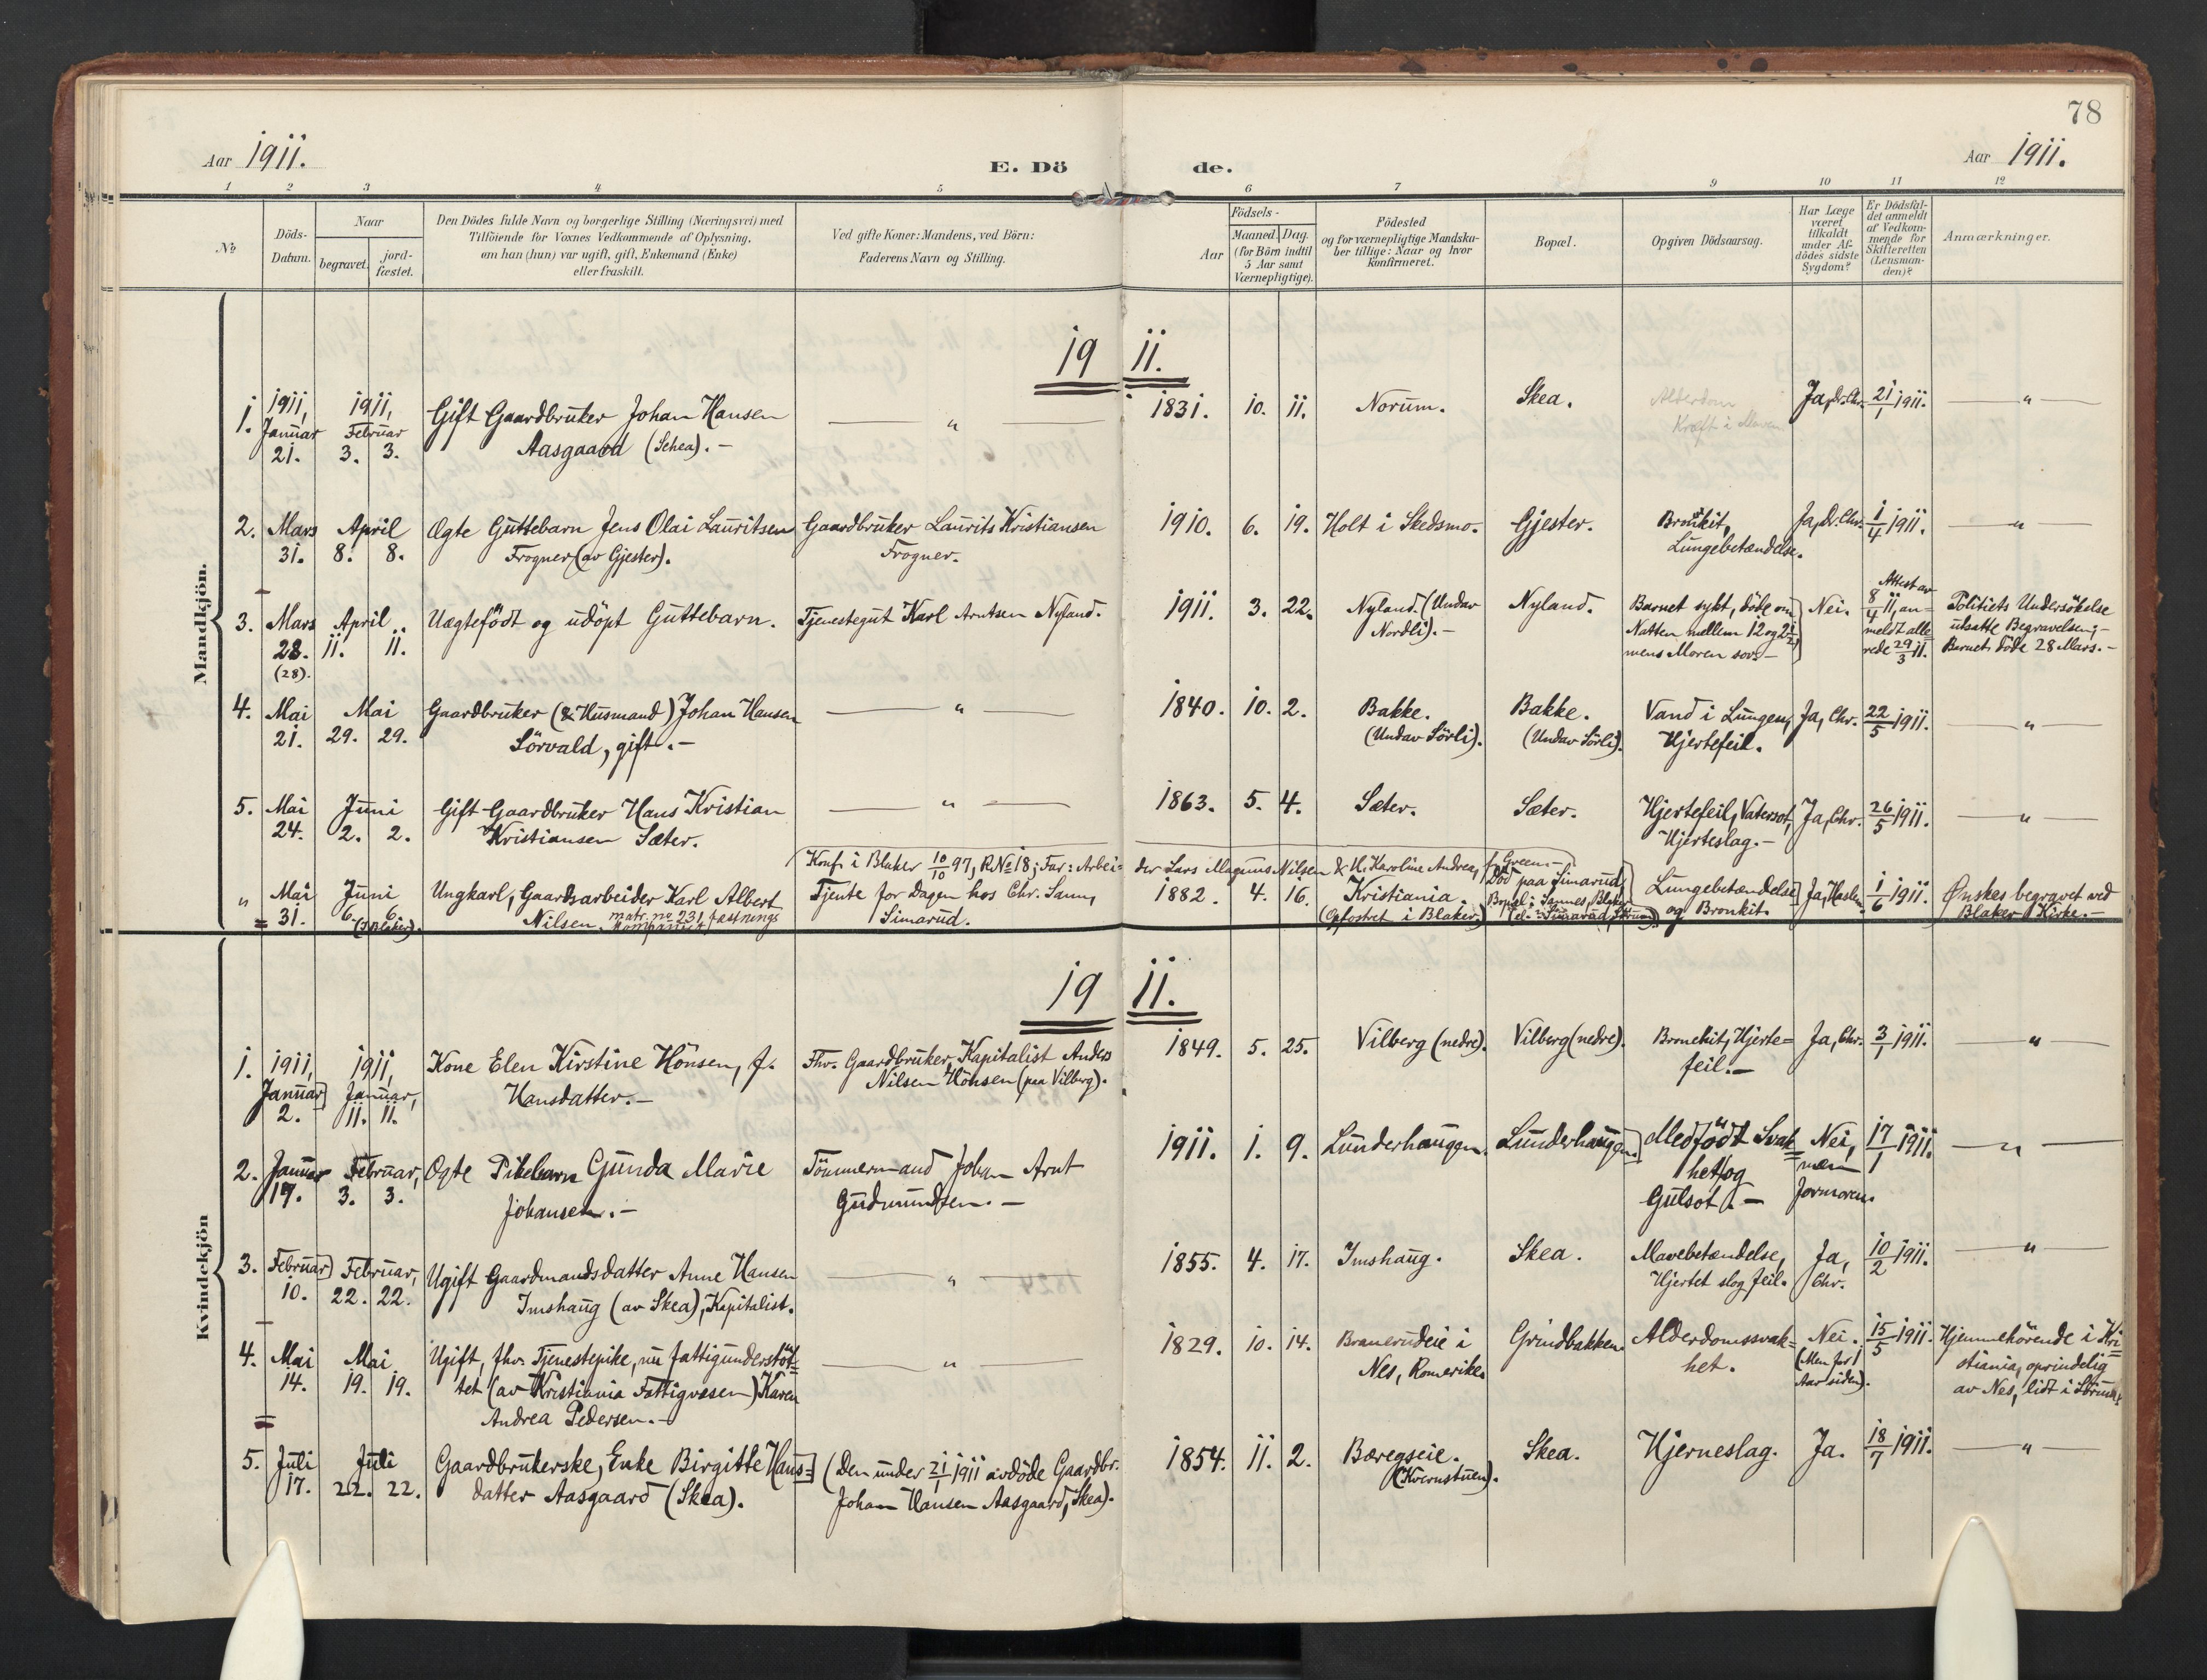 78
Aar 1911.
E. Dö de.
Aar 1911.
1 2 3 4 5 6 7 9 10 11 12
No
Döds-
Datum.
Naar
begravet.
jord-
fæstet.
Den Dödes fulde Navn og borgerlige Stilling (Næringsvei) med
Tilföiende for Voxnes Vedkommende af Oplysning,
om han (hun) var ugift, gift, Enkemand (Enke)
eller fraskilt.
Ved gifte Koner: Mandens, ved Börn:
Faderens Navn og Stilling.
Födsels-
Aar
Maaned. Dag.
(for Börn indtil
5 Aar samt
Værnepligtige).
Födested
og for værnepligtige Mandska-
ber tillige: Naar og hvor
konfirmeret.
Bopæl.
Opgiven Dödsaarsag.
Har Læge
været
tilkaldt
under Af-
dödes sidste
Sygdom?
Er Dödsfal-
det anmeldt
af Vedkom-
mende for
Skifteretten
(Lensman-
den)?
Anmærkninger.
Mandkjön.
1911.
1. 1911, Januar 21.
1911, Februar 3. 3.
Gift Gaardbruker Johan Hansen
Aasgaard (Schea).-
— " —
1831. 10. 11.
Norum.
Skea.
Alderdom
Kræft i Maven
Ja, dr. Chr.
21/1 1911.
— " —
2. Mars 31.
April 8. 8.
Ægte Guttebarn Jens Olai Lauritsen
Frogner (av Gjester).
Gaardbruker Laurits Kristiansen
Frogner.
1910. 6. 19.
Holt i Skedsmo.
Gjester.
Bronkit,
Lungebetændelse.
Ja, dr. Chr.
1/4 1911.
— " —
3. Mars 28.
(28).
April 11. 11.
Uægtefödt og udöpt Guttebarn.
Tjenestegut Karl Arntsen Nyland.
1911. 3. 22.
Nyland. (Undav
Nordli).-
Nyland.
Barnet sykt, döde om
Natten mellem 12 og 2
mens Moren sov.-
Nei.
Attest av
8/4 11, an-
meldt alle-
rede 29/3 11.
Politiets Undersökelse
utsatte Begravelsen;-
Barnet döde 28 Mars.-
4. Mai 21.
Mai 29. 29.
Gaardbruker (& Husmand) Johan Hansen
Sörvald, gift.-
— " —
1840. 10. 2.
Bakke.
(Undav Sörli).
Bakke.
(Undav Sörli).
Vand i Lungen,
Hjertefeil.
Ja, Chr.
22/5 1911.
— " —
5. Mai 24.
Juni 2. 2.
Gift Gaardbruker Hans Kristian
Kristiansen Sæter.
— " —
1863. 5. 4.
Sæter.
Sæter.
Hjertefeil, Vatersot,
Hjerteslag.-
Ja, Chr.
26/5 1911.
— " —
Konf. i Blaker 10/10 97, R No 18; Far: Arbei-
der Lars Magnus Nilsen & H. Karoline Andrea, f. Green.-
" Mai 31.
Juni 6. 6.
(i Blaker).
Ungkarl, Gaardsarbeider Karl Albert
Nilsen. matr. no 231, fæstnings
kompani 4
Tjente for Dagen hos Chr. Sann,
Simarud.
1882. 4. 16.
Kristiania.
(Opfostret i Blaker.)
Död paa Simarud;
Bopæl: Sannes, Blaker
Lungebetændelse
og Bronkit.
Ja, Hasle.
1/6 1911.
Ønskes begravet ved
Blaker Kirke.-
Kvindekjön
1911.
1. 1911, Januar 2.
1911, Januar, 11. 11.
Kone Elen Kirstine Hönsen, f.
Hansdatter.-
Fhv. Gaardbruker, Kapitalist Anders
Nilsen Hönsen (paa Vilberg).
1849. 5. 25.
Vilberg (nedre).
Vilberg (nedre).
Bronchit, Hjerte-
feil.-
Ja, Chr.
3/1 1911.
— " —
2. Januar 17.
Februar, 3. 3.
Ægte Pikebarn Gunda Marie
Johansen.-
Tömmermand Johan Arnt
Gudmundsen.-
1911. 1. 9.
Lunderhaugen.
Lunderhaugen.
Medfödt Svak-
het og
Gulsot.-
Nei,
men
Jormoren.
17/1 1911.
— " —
3. Februar 10.
Februar, 22. 22.
Ugift Gaardmandsdatter Anne Hansen
Imshaug (av Skea), Kapitalist.
— " —
1855. 4. 17.
Imshaug.
Skea.
Mavebetændelse,
Hjertet slog feil.
Ja,
Chr.
10/2 1911.
— " —
4. Mai 14.
Mai 19. 19.
Ugift, fhv. Tjenestepike, nu fattigunderstöt-
tet (av Kristiania Fattigvæsen) Karen
Andrea Pedersen.-
— " —
1829. 10. 14.
Branerudeie i
Nes, Romerike.
Grindbakken.
Alderdomssvak-
het.
Nei.
(Men for 1
Aar siden).
15/5 1911.
Hjemmehörende i Kri-
stiania, oprindelig
av Nes, lidt i
5. Juli 17.
Juli 22. 22.
Gaardbrukerske, Enke Birgitte Hans-
datter Aasgaard (Skea).
(Den under 21/1 1911 avdöde Gaardbr.
Johan Hansen Aasgaard, Skea).
1854. 11. 2.
Bæregseie.
(Kvernstuen).
Skea.
Hjerneslag.
Ja.
18/7 1911.
— " —